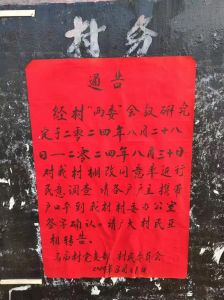 村务
通告
经村“两委”会议研究
定于二零二四年八月二十八
日—二零二四年八月三十日
对我村棚改问意率进行
民意调查请各户户主携带
户口本到我村村委办公室
签字确认。请广大村民互
相转告。
村党支部 村民委员会
2024年8月